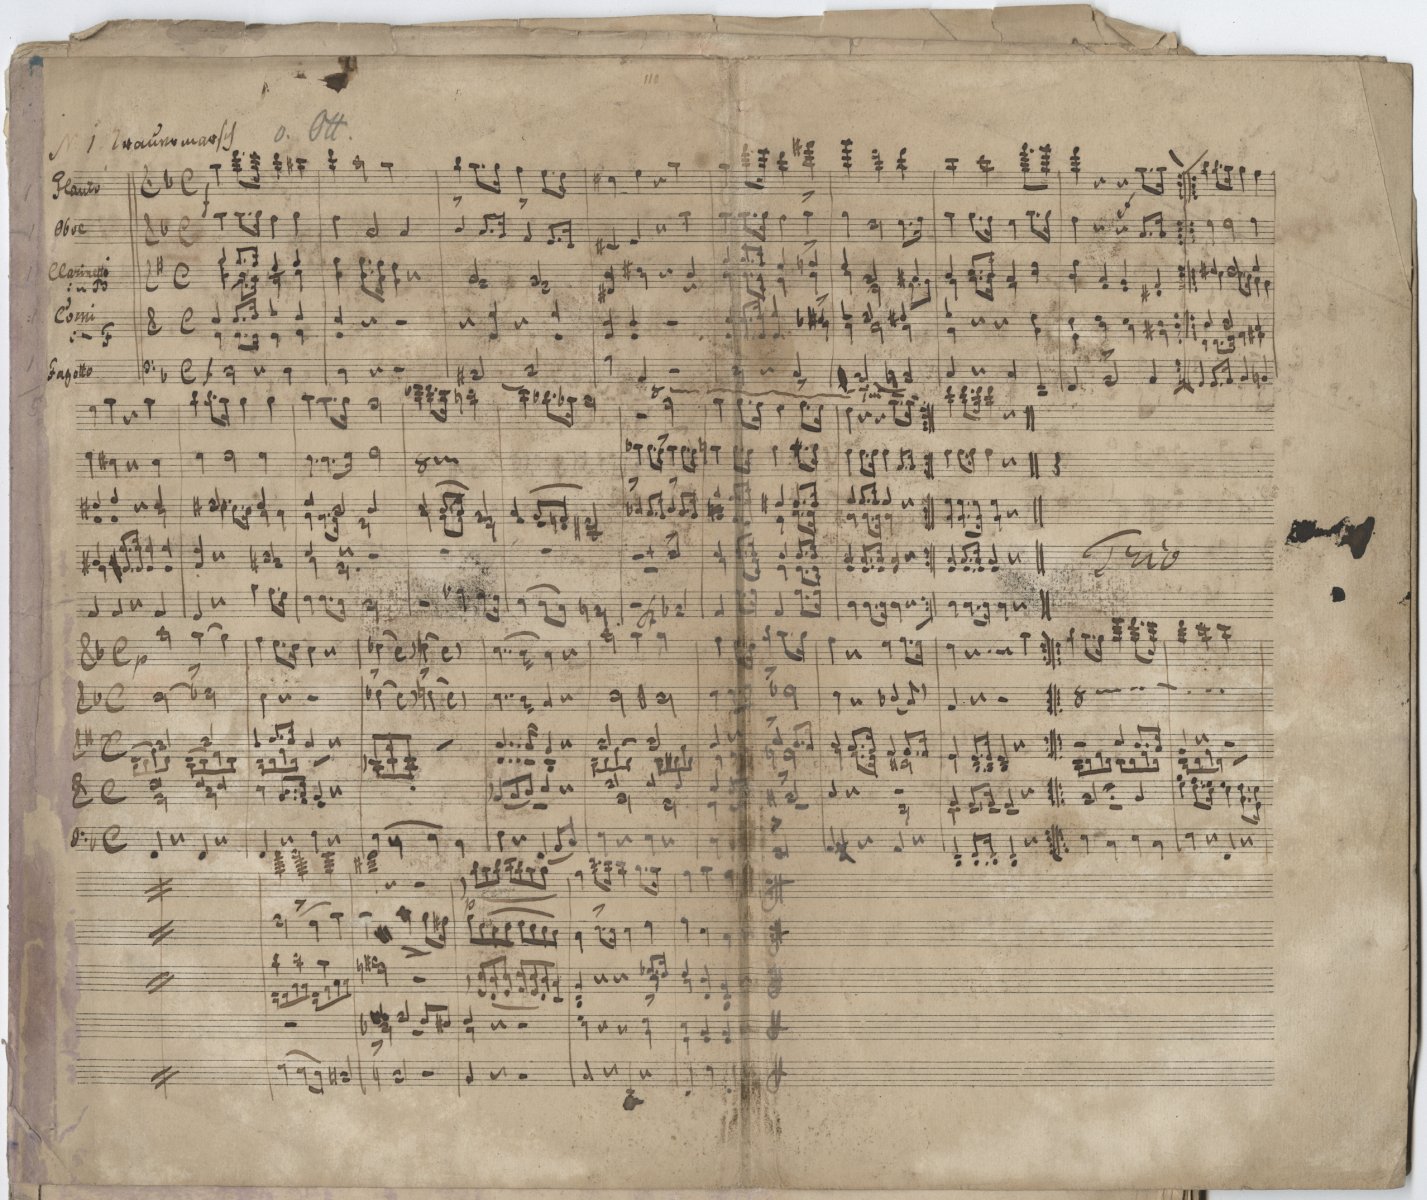 N. 1 Trauermarsch v. Ott.
Flauto
Oboe
Clarinetti
in B
Corni
in F
Fagotto
f
Trio
p